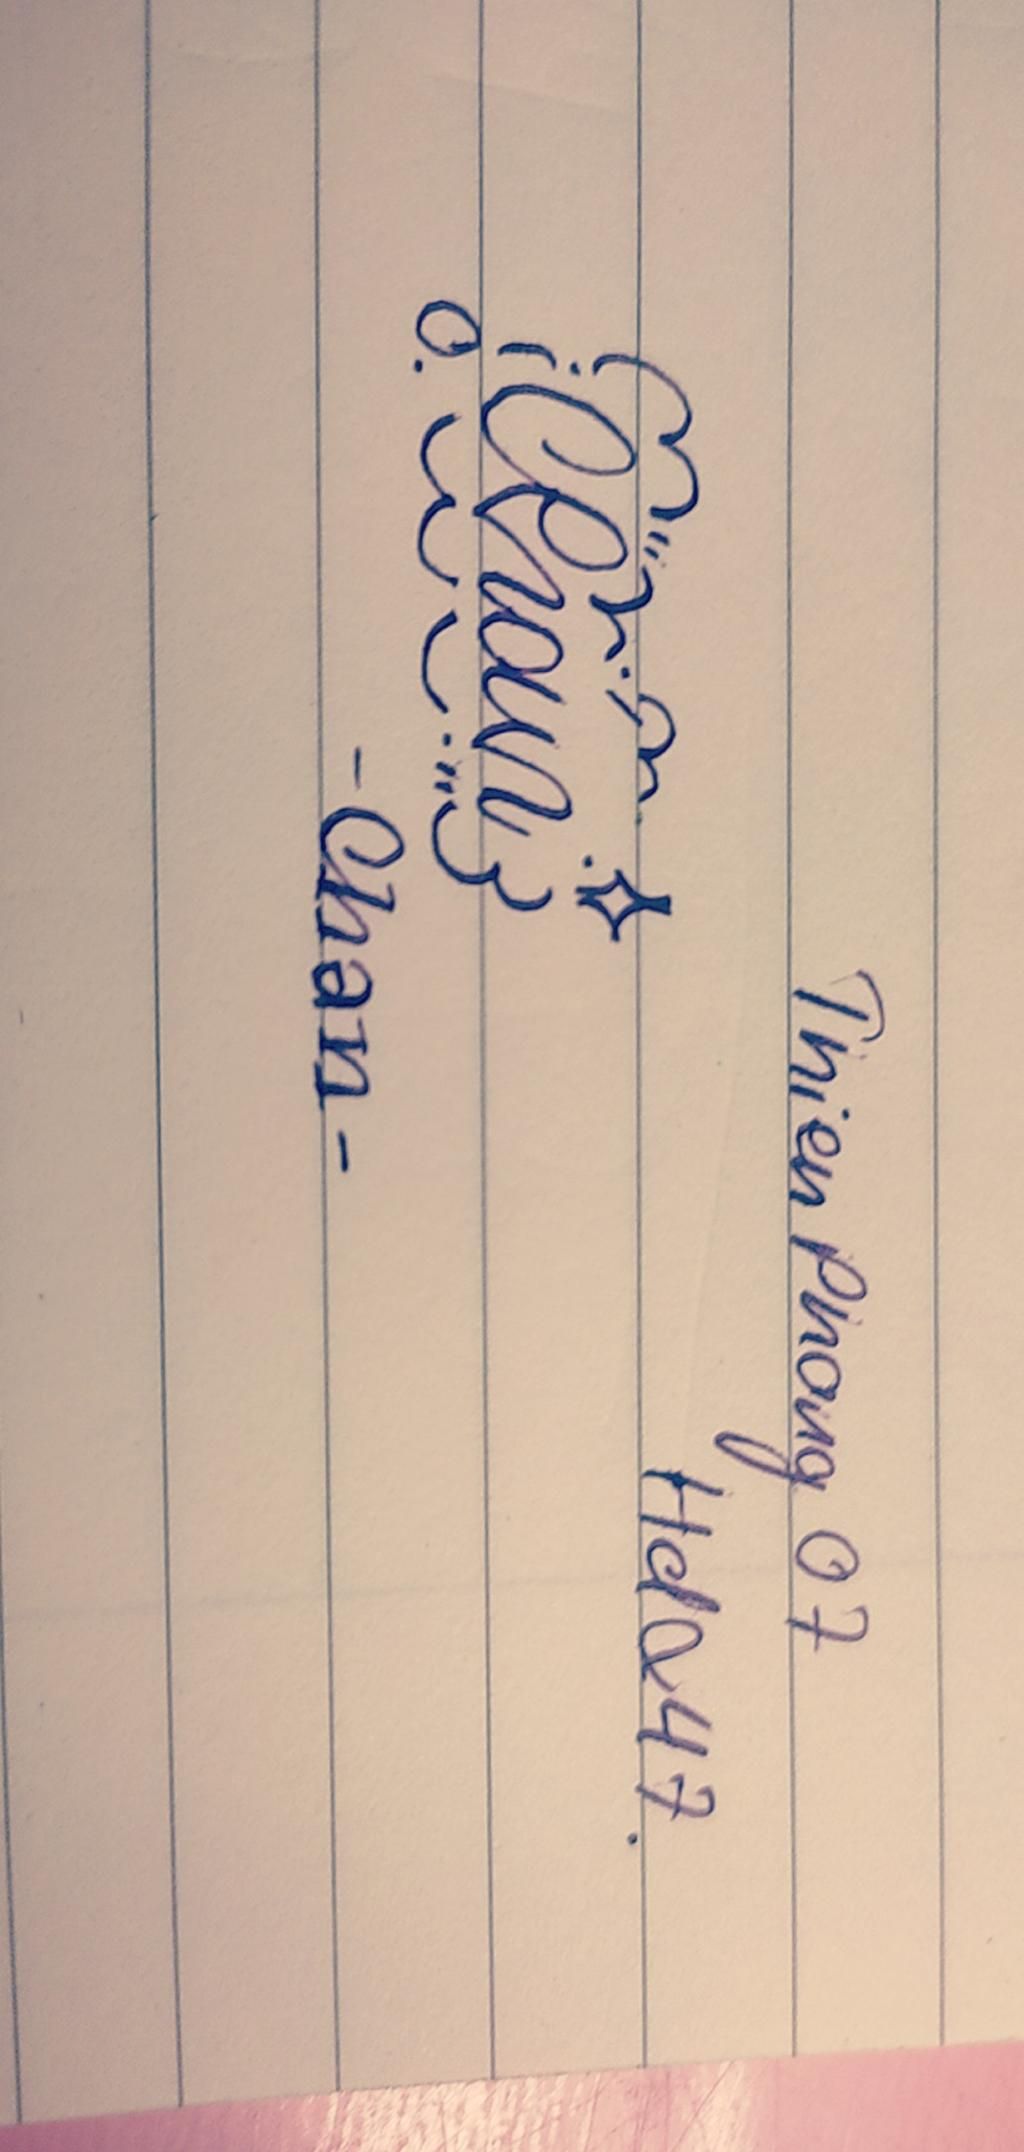 Thien Phong 07
Hda47.
Chan
-Chan-